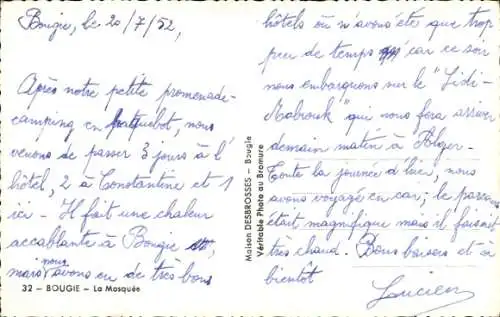 Bougie, le 20/7/52,
Après notre petite promenade-
camping en paquebot, nous
venons de passer 3 jours à l'
hôtel, 2 à Constantine et 1
ici - Il fait une chaleur
accablante à Bougie
mais nous avons eu de très bons
32 - BOUGIE - La Mosquée
Maison DESBROSSES - Bougie
Véritable Photo au Bromure
hôtels où n'avons été que trop
peu de temps car ce soir
nous embarquons sur le "Sidi-
Mabrouk" qui nous fera arriver
demain matin à Alger -
Toute la journée d'hier, nous
avons voyagé en car; le
était magnifique mais il faisait
très chaud. Bons baisers et à
bientôt
Lucien